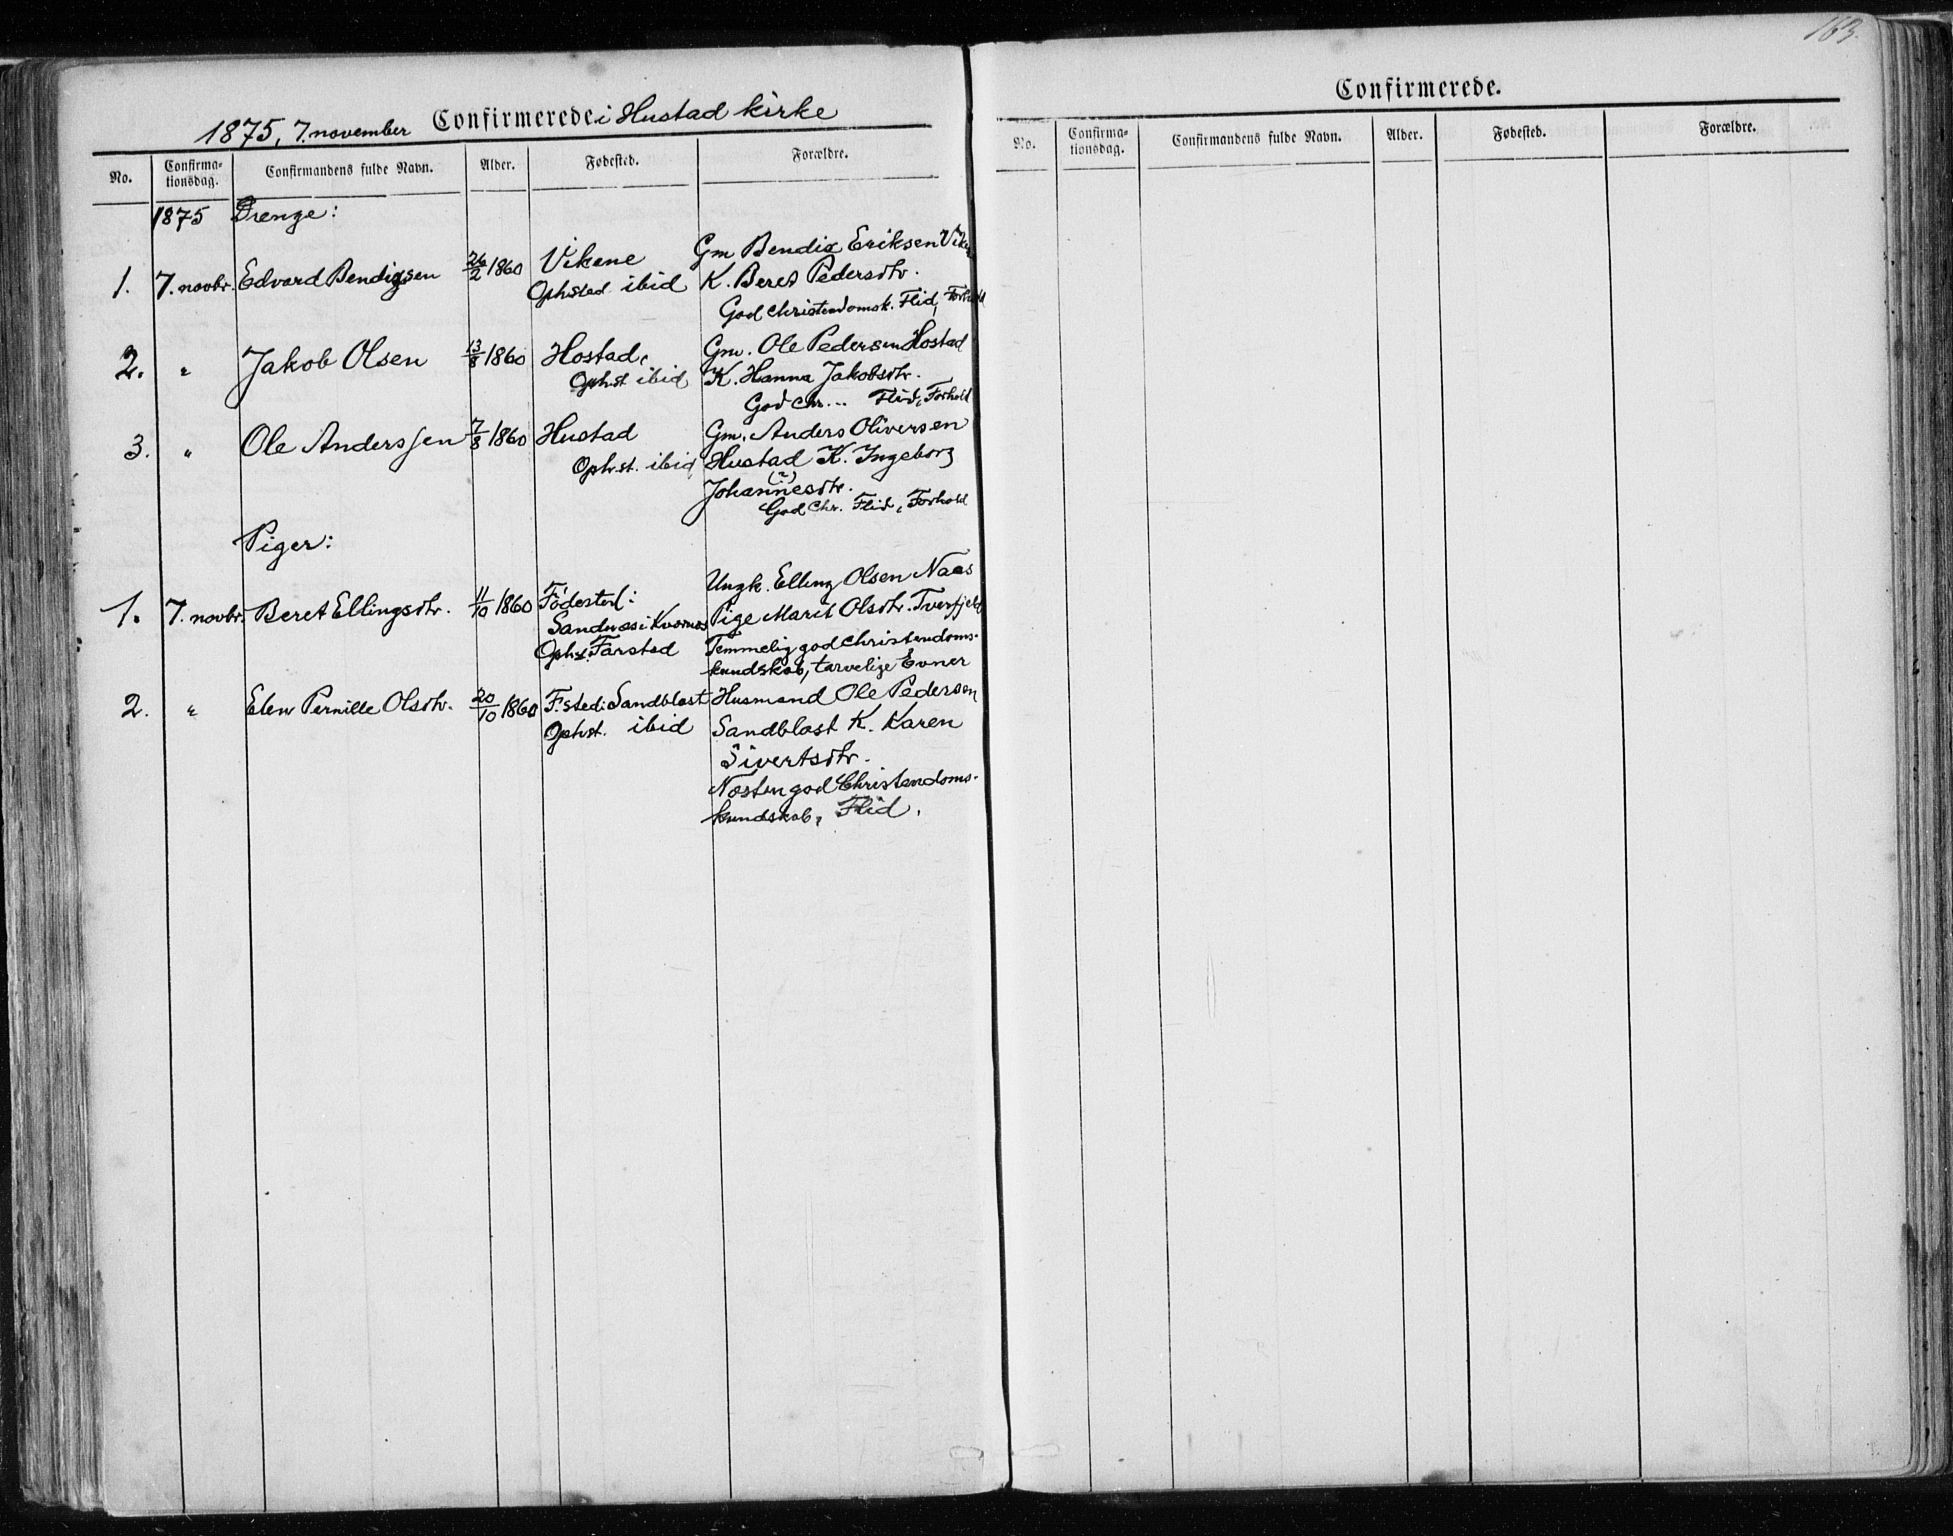 1875, 7. november Confirmerede i Hustad kirke
No. Confirma-tionsdag. Confirmandens fulde Navn. Alder. Fødested. Forældre.
1875 Drenge:
1. 7. novbr. Edvard Bendigsen 26/2 1860 Vikene Gm Bendix Eriksen
Ophsted ibid K. Beret Pedersdtr.
God christendomsk. Flid, Forhold
2. " Jakob Olsen 13/8 1860 Hostad, Gm. Ole Pedersen Hostad
Ophst ibid K. Hanna Jakobsdtr.
God Chr... Flid, Forhold
3. " Ole Anderssen 7/8 1860 Hustad Gm. Anders Oliversen
Ophst. ibid Hustad K. Ingeborg
Johannesdtr. (?)
God Chr. Flid, Forhold
Piger:
1. 7. novbr. Beret Ellingsdtr. 11/10 1860 Födested: Ungk. Elling Olsen Naas
Sandnes i Kvernes Pige Marit Olsdtr. Tverfjeld
Ophst. Farstad Temmelig god christendoms-
kundskab, tarvelige Evner
2. " Elen Pernille Olsdtr. 20/10 1860 F.sted: Sandblast Husmand Ole Pedersen
Ophst. ibid Sandblast K. Karen
Sivertsdtr.
Næsten god Christendoms-
kundskab, Flid.
163.
Confirmerede.
No. Confirma-tionsdag. Confirmandens fulde Navn. Alder. Fødested. Forældre.